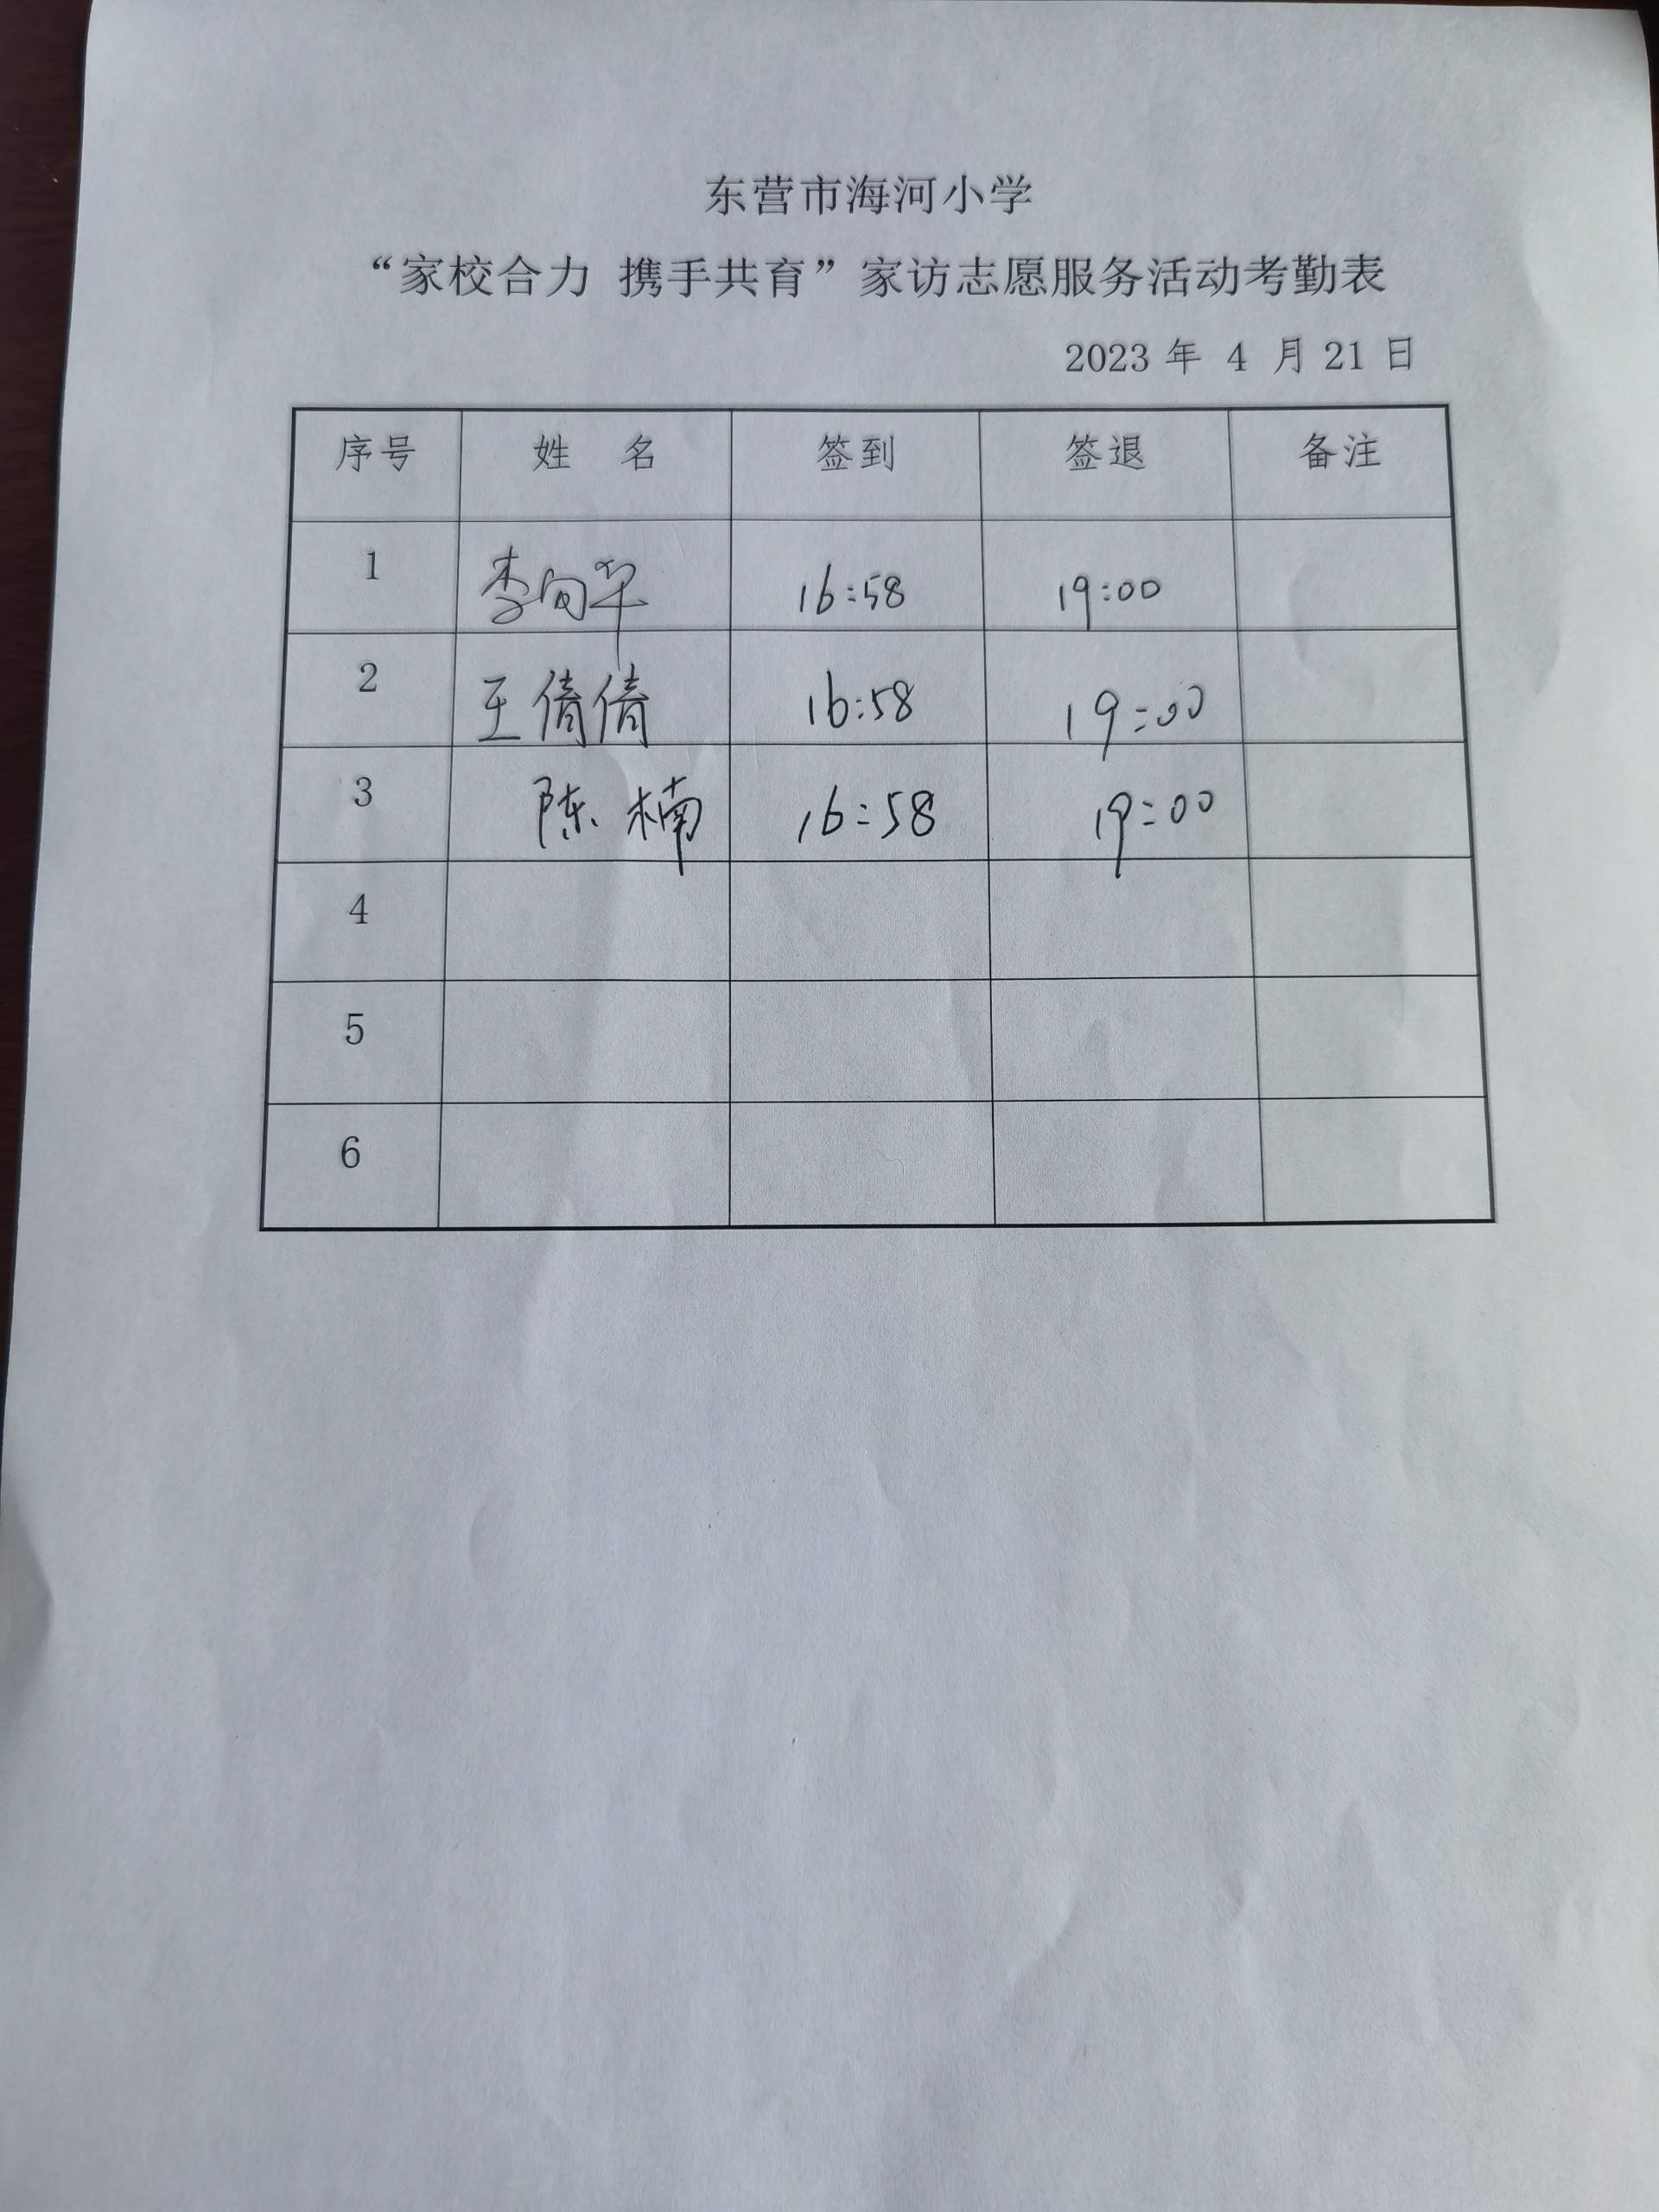 东营市海河小学
“家校合力 携手共育”家访志愿服务活动考勤表
2023 年 4 月 21 日
序号 姓 名 签到 签退 备注
1 李向华 16:58 19:00
2 王倩倩 16:58 19:00
3 陈楠 16:58 19:00
4
5
6